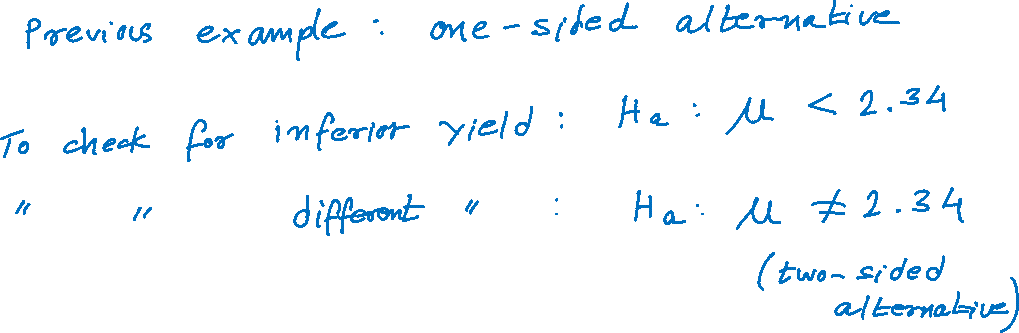 Previous example : one-sided alternative
To check for inferior yield : Ha : μ < 2.34
" " different " : Ha : μ ≠ 2.34
(two-sided
alternative)